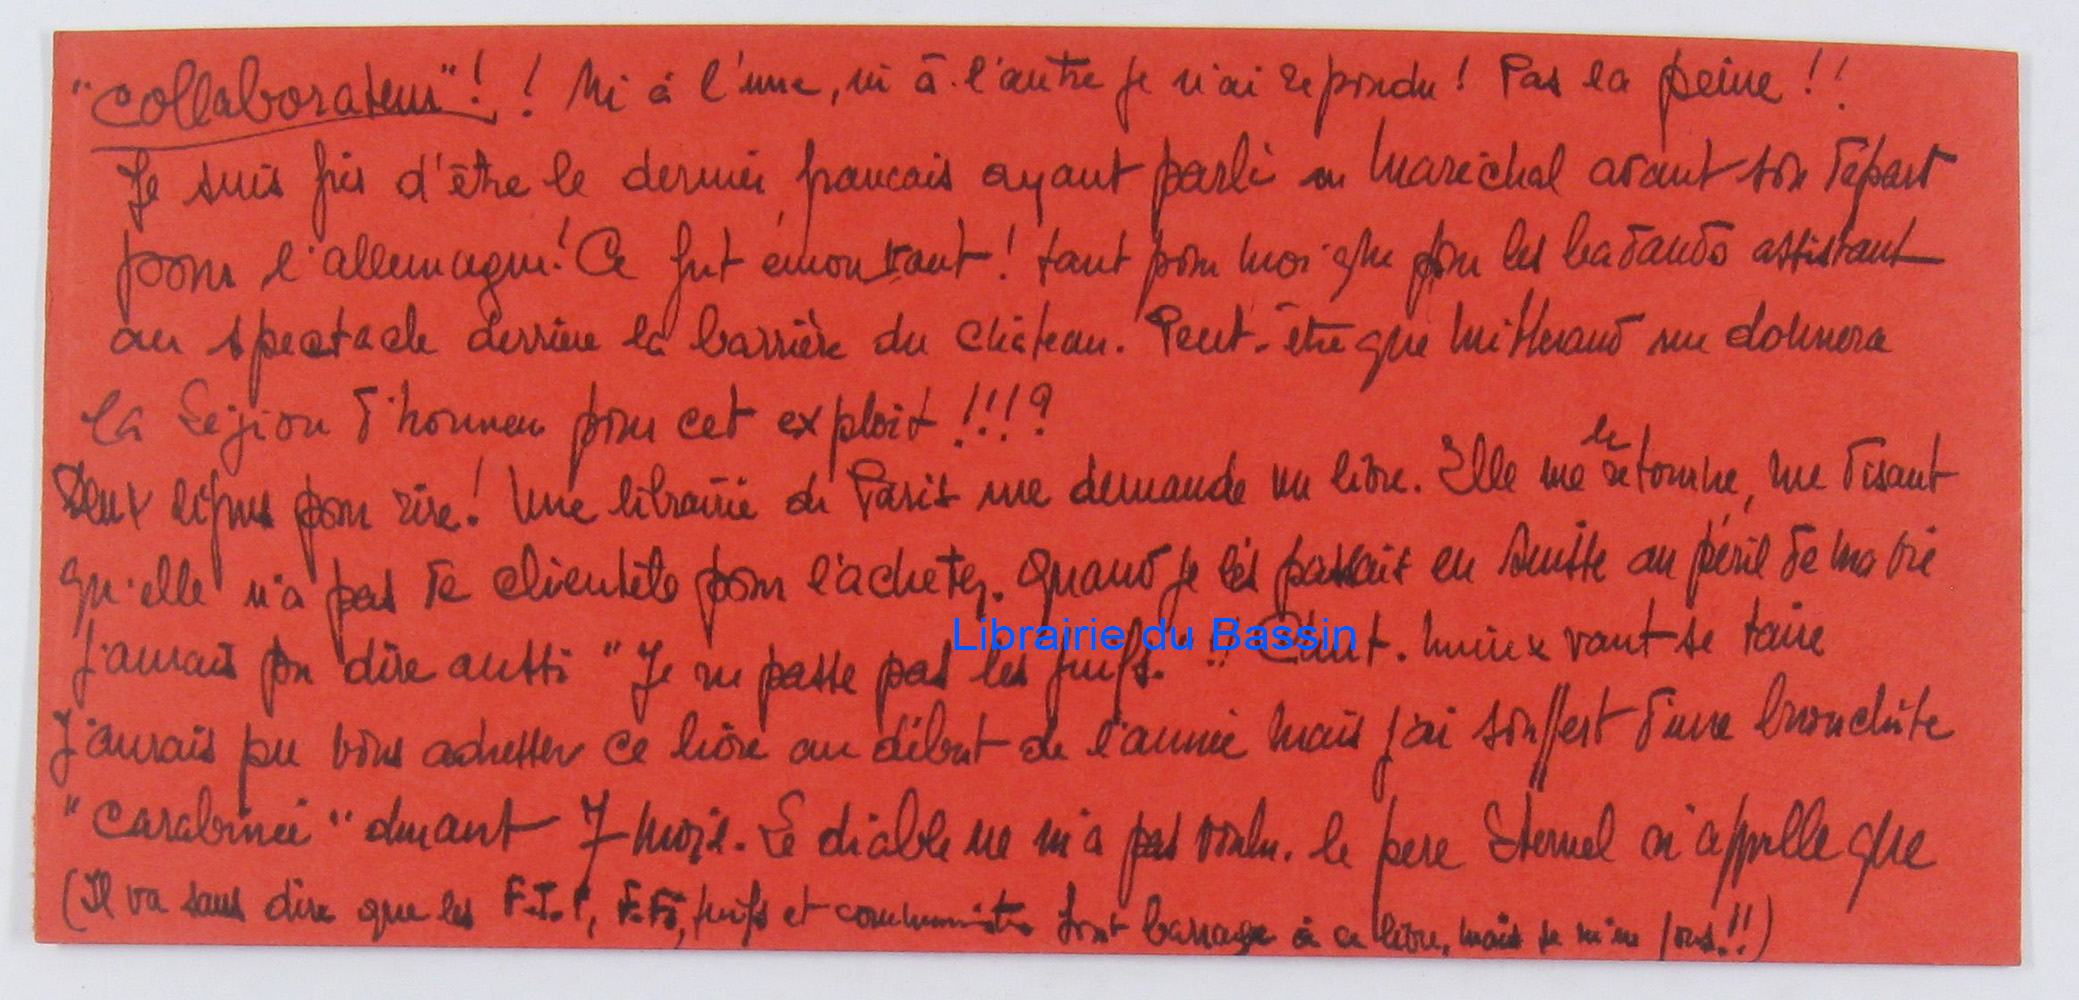 "collaborateur"! ! Ni à l'une, ni à l'autre je n'ai repondu! Pas la peine!!
Je suis fier d'être le dernier francais ayant parlé au Maréchal avant son départ
pour l'allemagne! Ce fut émouvant! tant pour moi que pour les badauds assistant
au spectacle derrière la barrière du château. Peut-être que Mitterand me donnera
la Légion d'honneur pour cet exploit!!!?
Deux lignes pour rire! Une librairie de Paris me demande un livre. Elle me le retourne, me disant
qu'elle n'a pas de clientèle pour l'acheter. Quand je les passais en Suisse au péril de ma vie
j'aurais pu dire aussi "Je ne passe pas les juifs." Chut. Mieux vaut se taire
Librairie du Bassin
J'aurais pu vous adresser ce livre au début de l'année mais j'ai souffert d'une bronchite
"carabinée" durant 7 mois. Le diable ne m'a pas voulu. le père Eternel m'appelle que
(Il va sans dire que les juifs et communistes font barrage à ce livre, mais je m'en fous!!)